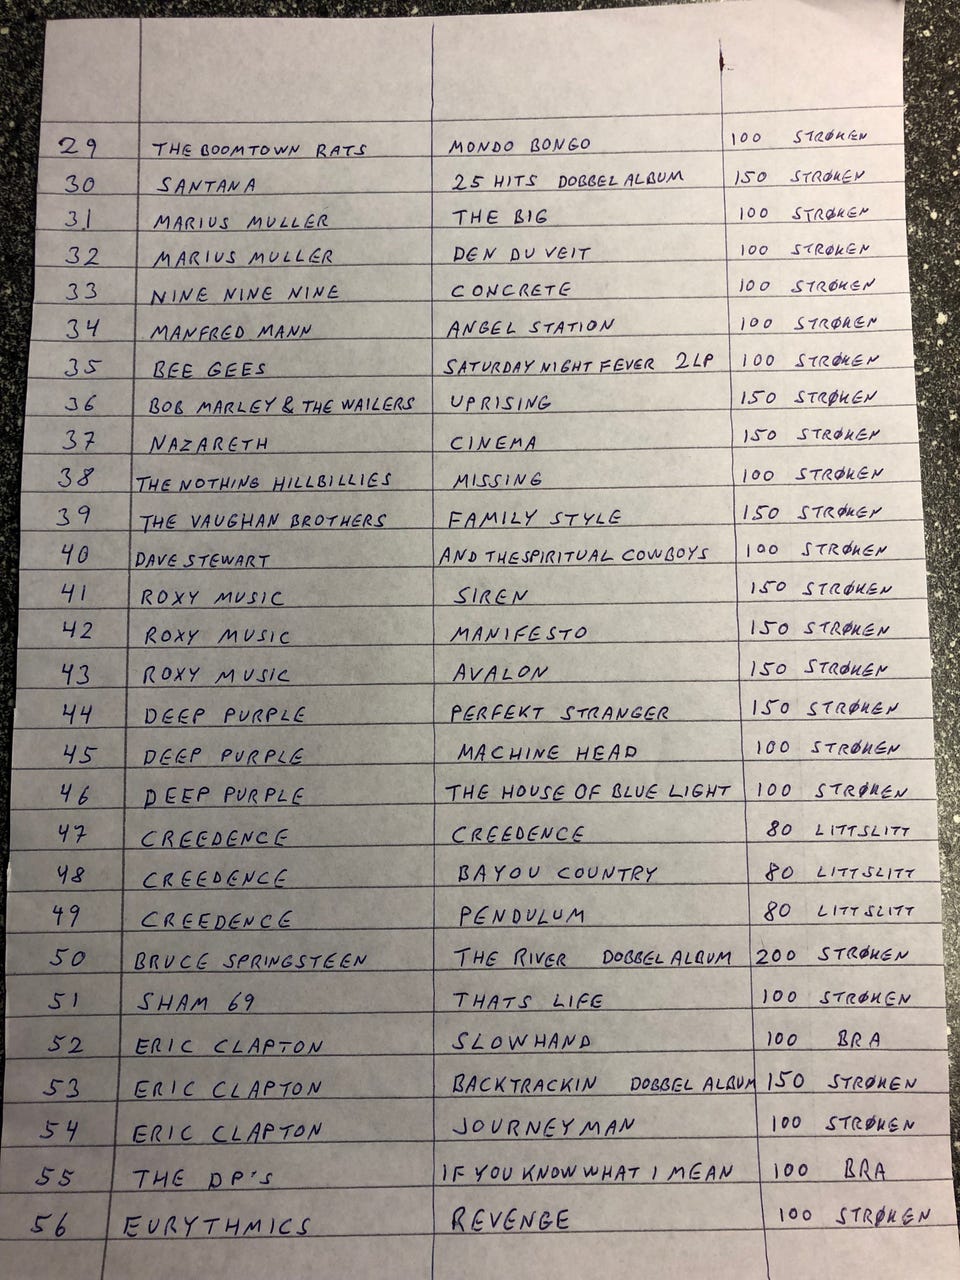 29 THE BOOMTOWN RATS MONDO BONGO 100 STRØKEN
30 SANTANA 25 HITS DOBBEL ALBUM 150 STRØKEN
31 MARIUS MULLER THE BIG 100 STRØKEN
32 MARIUS MULLER DEN DU VEIT 100 STRØKEN
33 NINE NINE NINE CONCRETE 100 STRØKEN
34 MANFRED MANN ANGEL STATION 100 STRØKEN
35 BEE GEES SATURDAY NIGHT FEVER 2LP 100 STRØKEN
36 BOB MARLEY & THE WAILERS UPRISING 150 STRØKEN
37 NAZARETH CINEMA 150 STRØKEN
38 THE NOTHING HILLBILLIES MISSING 100 STRØKEN
39 THE VAUGHAN BROTHERS FAMILY STYLE 150 STRØKEN
40 DAVE STEWART AND THE SPIRITUAL COWBOYS 100 STRØKEN
41 ROXY MUSIC SIREN 150 STRØKEN
42 ROXY MUSIC MANIFESTO 150 STRØKEN
43 ROXY MUSIC AVALON 150 STRØKEN
44 DEEP PURPLE PERFEKT STRANGER 150 STRØKEN
45 DEEP PURPLE MACHINE HEAD 100 STRØKEN
46 DEEP PURPLE THE HOUSE OF BLUE LIGHT 100 STRØKEN
47 CREEDENCE CREEDENCE 80 LITT SLITT
48 CREEDENCE BAYOU COUNTRY 80 LITT SLITT
49 CREEDENCE PENDULUM 80 LITT SLITT
50 BRUCE SPRINGSTEEN THE RIVER DOBBEL ALBUM 200 STRØKEN
51 SHAM 69 THATS LIFE 100 STRØKEN
52 ERIC CLAPTON SLOWHAND 100 BRA
53 ERIC CLAPTON BACKTRACKIN DOBBEL ALBUM 150 STRØKEN
54 ERIC CLAPTON JOURNEYMAN 100 STRØKEN
55 THE DP'S IF YOU KNOW WHAT I MEAN 100 BRA
56 EURYTHMICS REVENGE 100 STRØKEN